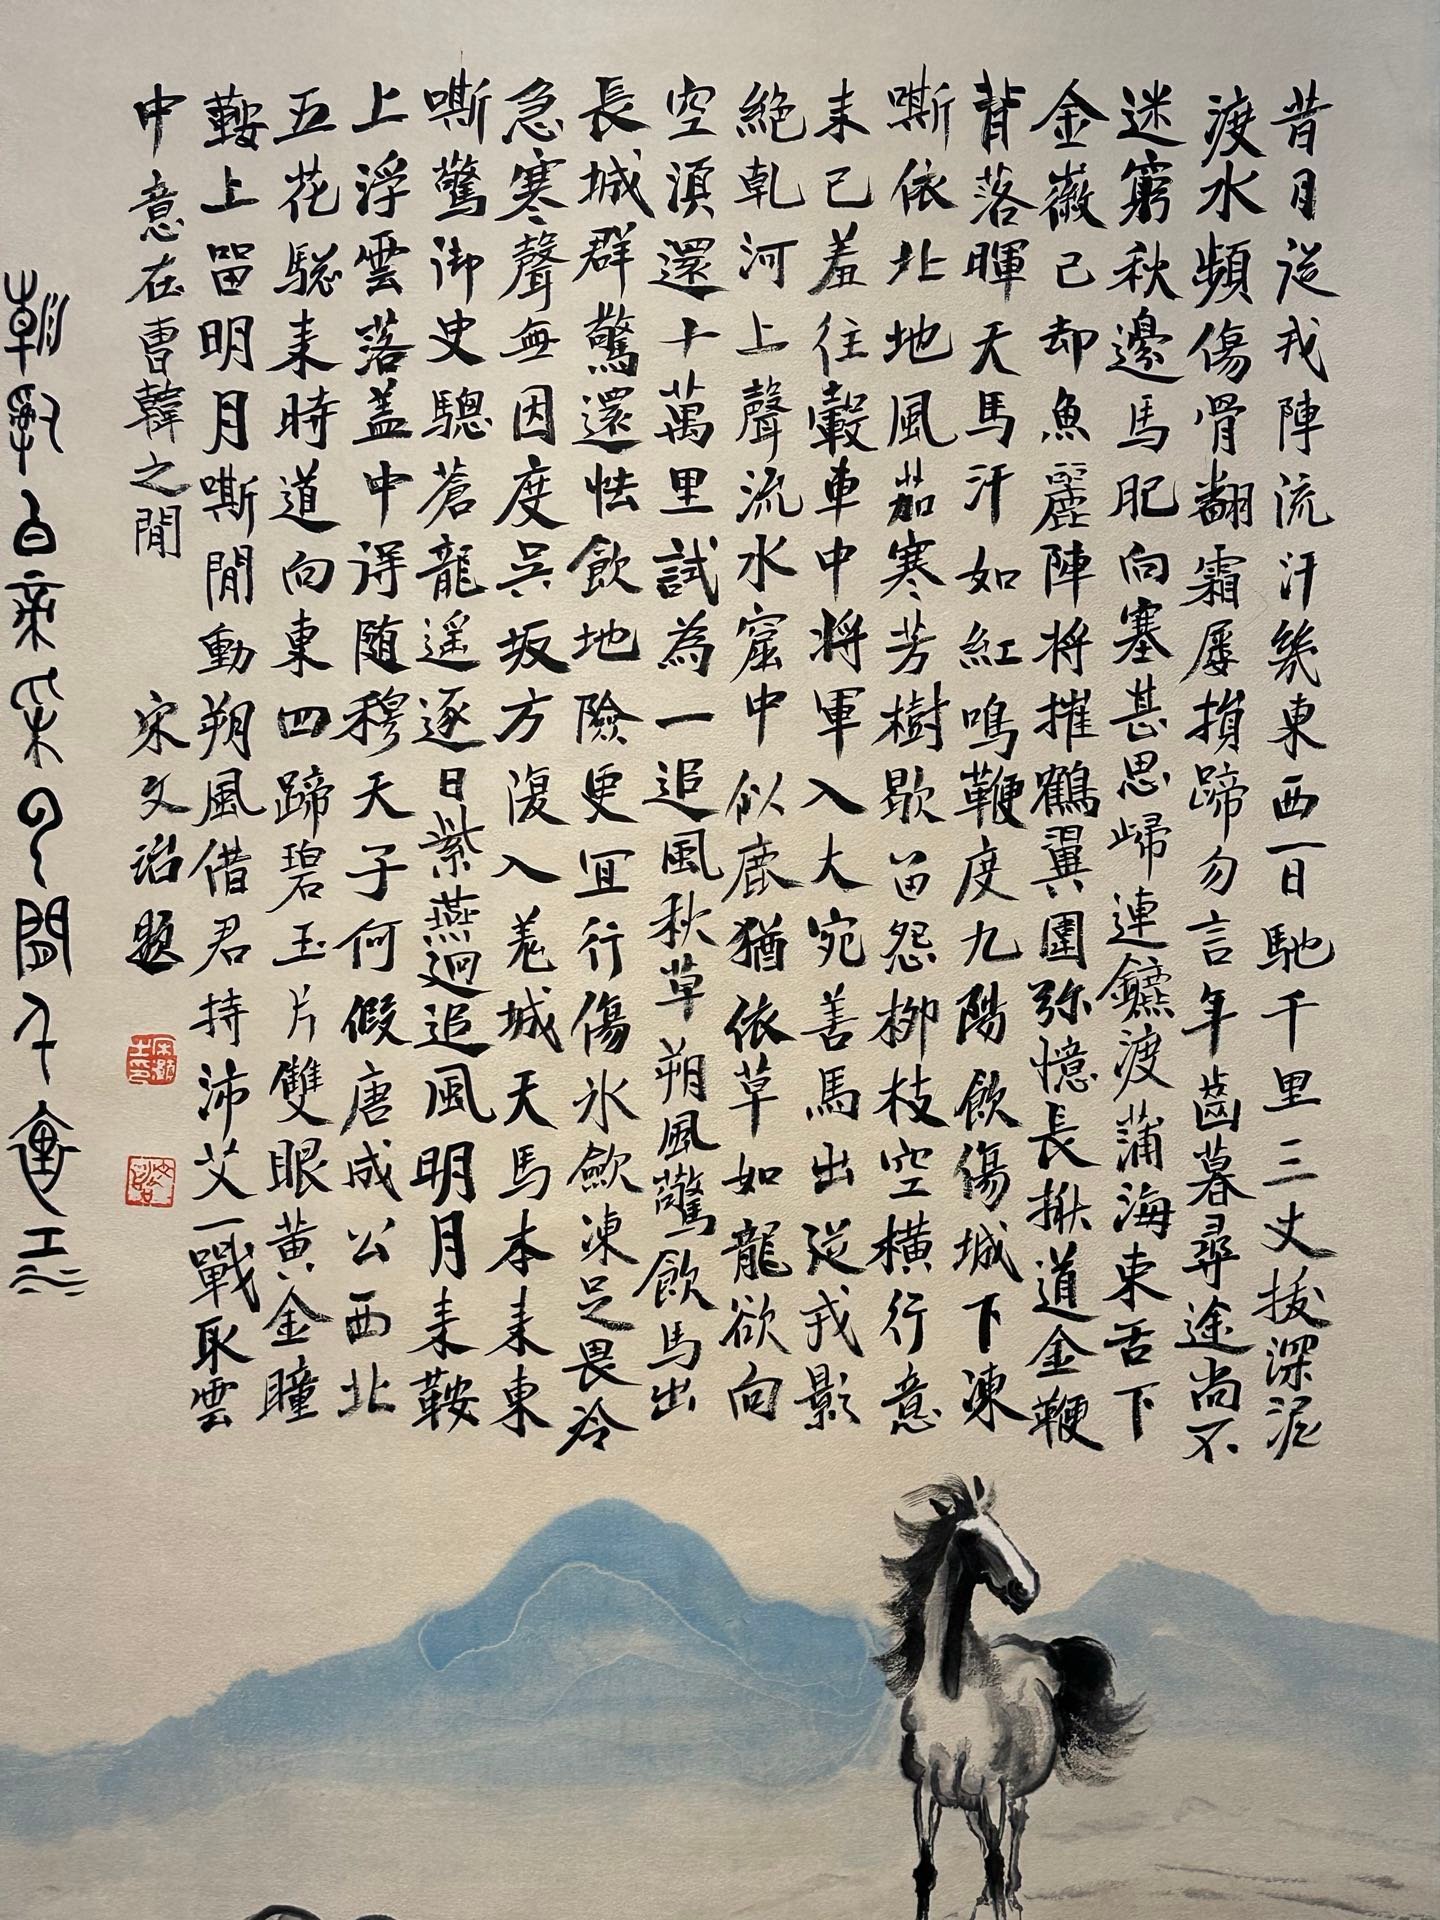 昔月從戎陣流汗幾東西一日馳千里三丈拔深泥
渡水頻傷骨翻霜屢損蹄勿言年齒暮尋途尚不
迷窮秋邊馬肥向塞甚思歸連鑣渡蒲海束舌下
金徽已却魚麗陣將摧鶴翼圍弥憶長楸道金鞭
背落暉天馬汗如紅鳴鞭度九陽飲傷城下凍
嘶依北地風茄寒芳樹歇笛怨柳枝空橫行意
未已羞往轂車中將軍入大宛善馬出從戎影
絶乹河上聲流水窟中似鹿猶依草如龍欲向
空湏還十萬里試為一追風秋草朔風驚飲馬出
長城群驚還怯飲地險更宜行傷氷歛凍足畏冷
急寒聲無因度吳坂方復入羌城天馬本来東
嘶驚御史驄蒼龍遥逐日紫燕迥追風明月来鞍
上浮雲落盖中得随穆天子何假唐成公西北
五花驄来時道向東四蹄碧玉片雙眼黄金瞳
鞍上留明月嘶閒動朔風借君持沛艾一戰取雲
中意在曹韓之間 宋文治題